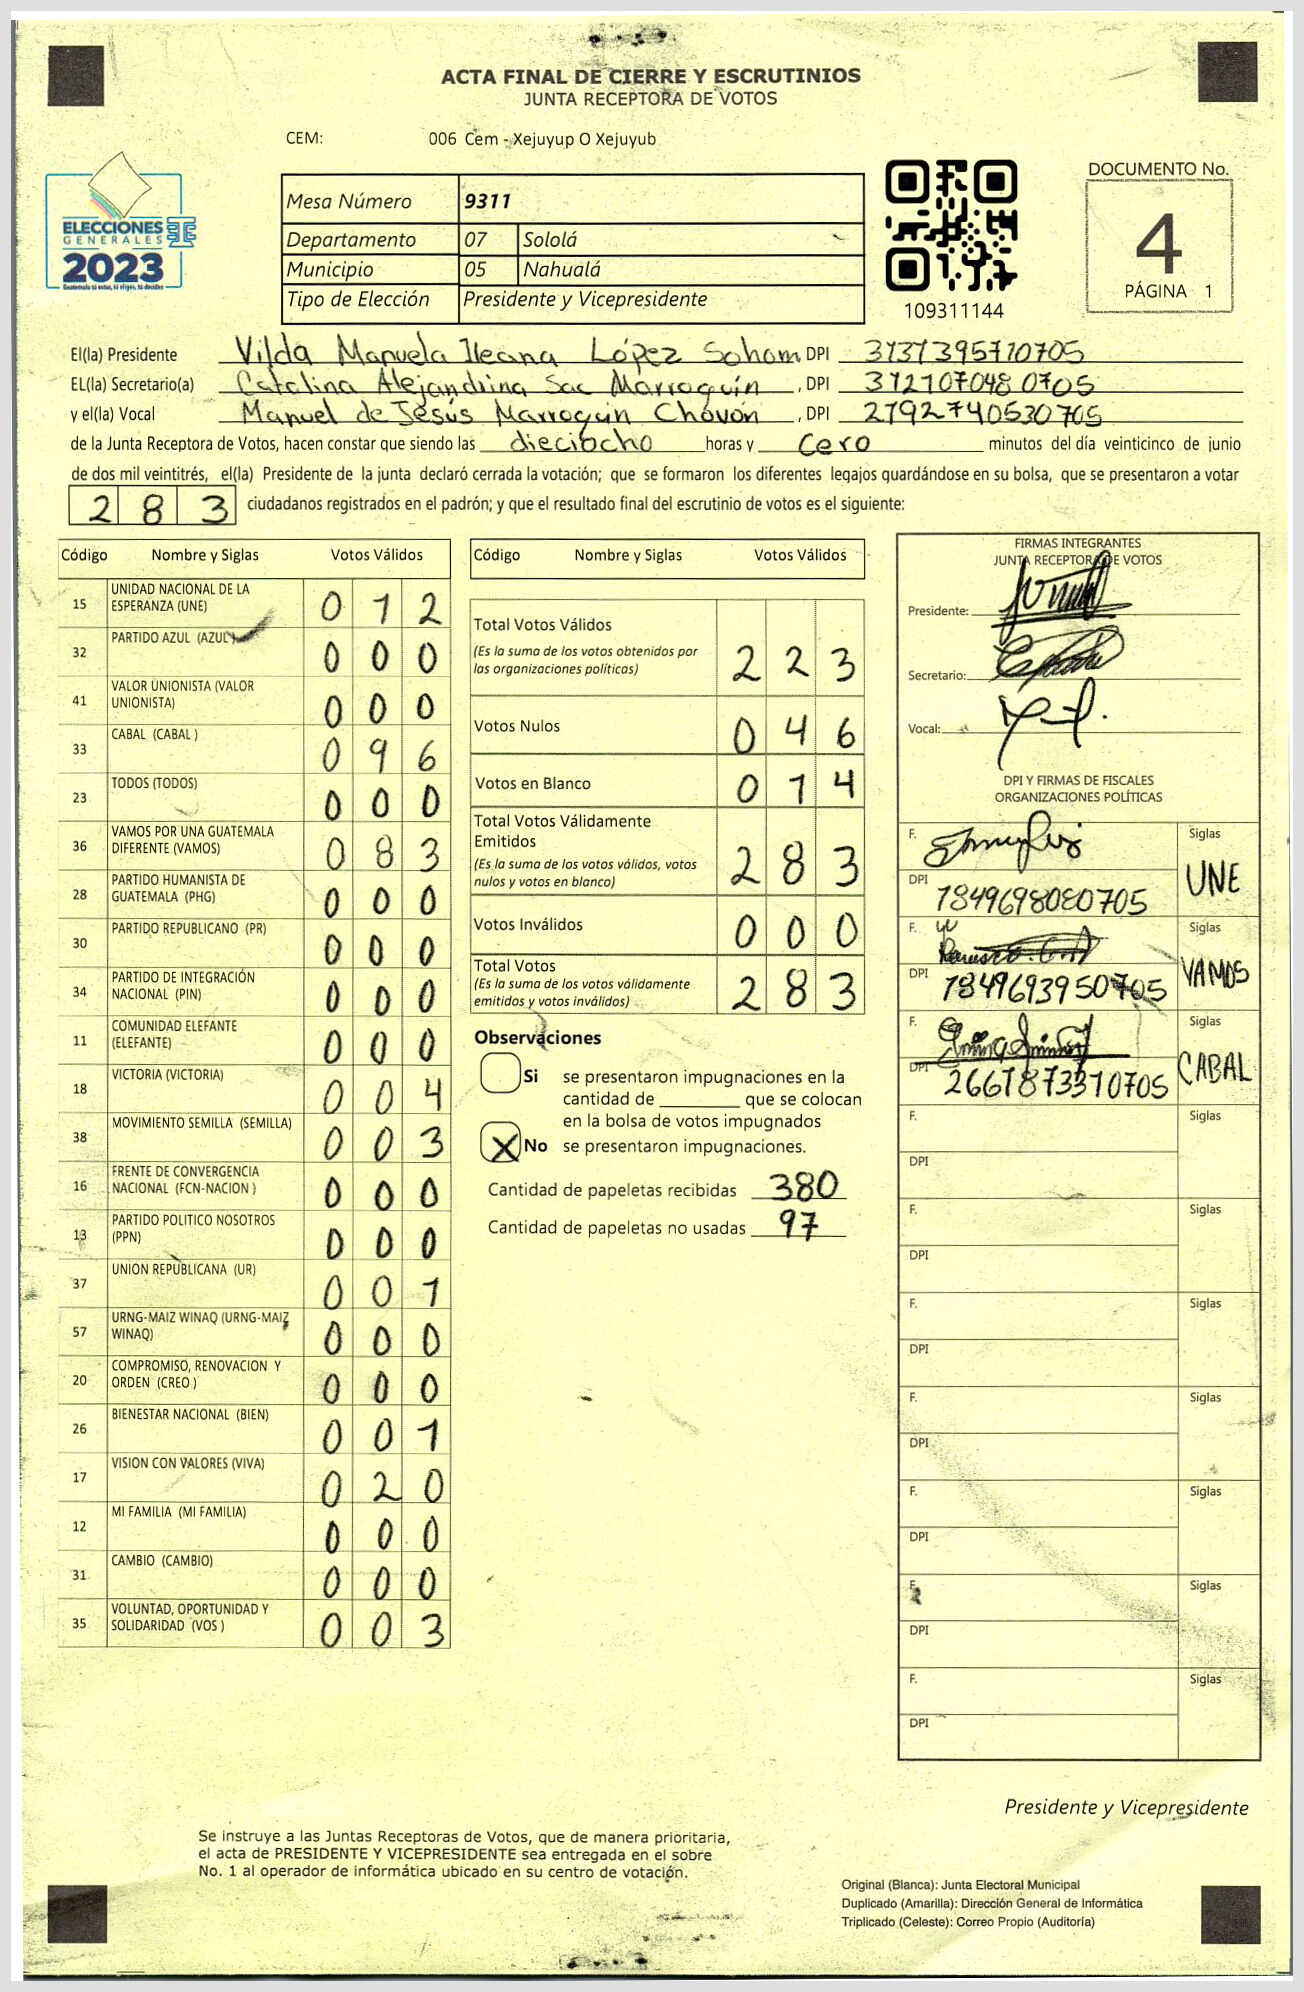 ACTA FINAL DE CIERRE Y ESCRUTINIOS
JUNTA RECEPTORA DE VOTOS
CEM: 006 Cem - Xejuyup O Xejuyub
ELECCIONES
GENERALES
2023
Guatemala tú votas, tú eliges, tú decides
Mesa Número 9311
Departamento 07 Sololá
Municipio 05 Nahualá
Tipo de Elección Presidente y Vicepresidente
109311144
DOCUMENTO No.
4
PÁGINA 1
El(la) Presidente Vilda Manuela Ileana López Sohom, DPI 3131395710705
EL(la) Secretario(a) Catalina Alejandrina Sac Marroquín, DPI 3121070480705
y el(la) Vocal Manuel de Jesús Marroquín Chovón, DPI 2792740530705
de la Junta Receptora de Votos, hacen constar que siendo las dieciocho horas y cero minutos del día veinticinco de junio
de dos mil veintitrés, el(la) Presidente de la junta declaró cerrada la votación; que se formaron los diferentes legajos guardándose en su bolsa, que se presentaron a votar
283 ciudadanos registrados en el padrón; y que el resultado final del escrutinio de votos es el siguiente:
Código Nombre y Siglas Votos Válidos
15 UNIDAD NACIONAL DE LA ESPERANZA (UNE) 012
32 PARTIDO AZUL (AZUL) 000
41 VALOR UNIONISTA (VALOR UNIONISTA) 000
33 CABAL (CABAL ) 096
23 TODOS (TODOS) 000
36 VAMOS POR UNA GUATEMALA DIFERENTE (VAMOS) 083
28 PARTIDO HUMANISTA DE GUATEMALA (PHG) 000
30 PARTIDO REPUBLICANO (PR) 000
34 PARTIDO DE INTEGRACIÓN NACIONAL (PIN) 000
11 COMUNIDAD ELEFANTE (ELEFANTE) 000
18 VICTORIA (VICTORIA) 004
38 MOVIMIENTO SEMILLA (SEMILLA) 003
16 FRENTE DE CONVERGENCIA NACIONAL (FCN-NACION ) 000
13 PARTIDO POLITICO NOSOTROS (PPN) 000
37 UNION REPUBLICANA (UR) 001
57 URNG-MAIZ WINAQ (URNG-MAIZ WINAQ) 000
20 COMPROMISO, RENOVACION Y ORDEN (CREO ) 000
26 BIENESTAR NACIONAL (BIEN) 001
17 VISION CON VALORES (VIVA) 020
12 MI FAMILIA (MI FAMILIA) 000
31 CAMBIO (CAMBIO) 000
35 VOLUNTAD, OPORTUNIDAD Y SOLIDARIDAD (VOS ) 003
Código Nombre y Siglas Votos Válidos
Total Votos Válidos
(Es la suma de los votos obtenidos por
las organizaciones políticas) 223
Votos Nulos 046
Votos en Blanco 014
Total Votos Válidamente
Emitidos
(Es la suma de los votos válidos, votos
nulos y votos en blanco) 283
Votos Inválidos 000
Total Votos
(Es la suma de los votos válidamente
emitidos y votos inválidos) 283
Observaciones
Si se presentaron impugnaciones en la
cantidad de ________ que se colocan
en la bolsa de votos impugnados
X No se presentaron impugnaciones.
Cantidad de papeletas recibidas 380
Cantidad de papeletas no usadas 97
FIRMAS INTEGRANTES
JUNTA RECEPTORA DE VOTOS
Presidente:
Secretario:
Vocal:
DPI Y FIRMAS DE FISCALES
ORGANIZACIONES POLÍTICAS
F. Siglas
DPI 1849698080705 UNE
F. Siglas
DPI 1849693950705 VAMOS
F. Siglas
DPI 2661873310705 CABAL
F. Siglas
DPI
F. Siglas
DPI
F. Siglas
DPI
F. Siglas
DPI
F. Siglas
DPI
F. Siglas
DPI
F. Siglas
DPI
Presidente y Vicepresidente
Se instruye a las Juntas Receptoras de Votos, que de manera prioritaria,
el acta de PRESIDENTE Y VICEPRESIDENTE sea entregada en el sobre
No. 1 al operador de informática ubicado en su centro de votación.
Original (Blanca): Junta Electoral Municipal
Duplicado (Amarilla): Dirección General de Informática
Triplicado (Celeste): Correo Propio (Auditoría)